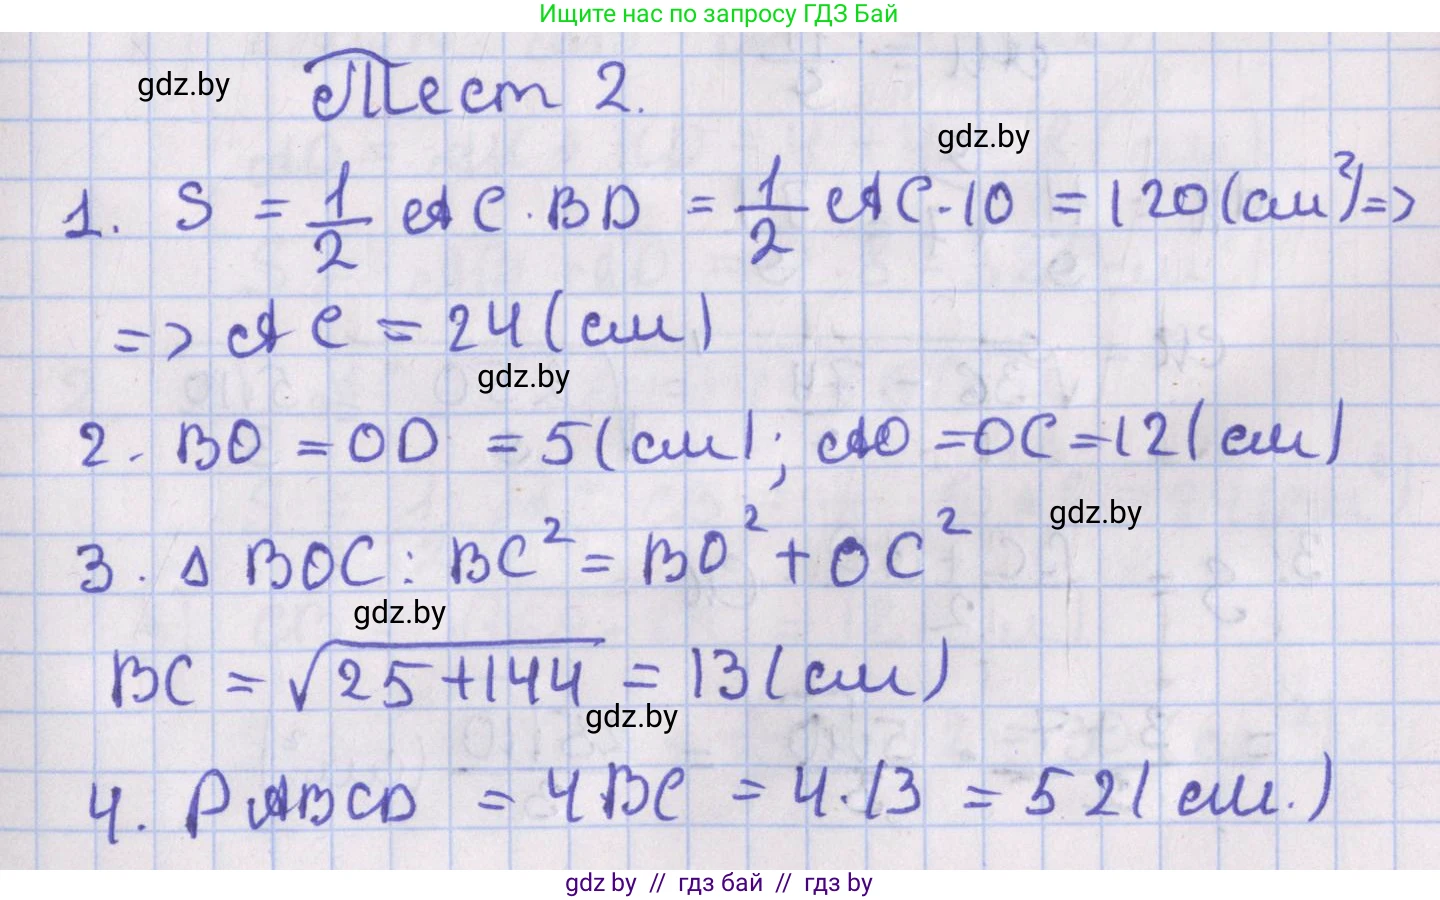 Ищите нас по запросу ГДЗ Бай
gdz.by
Тест 2.
gdz.by
1. S = 1/2 AC · BD = 1/2 AC · 10 = 120 (см²) =>
=> AC = 24 (см)
gdz.by
2. BO = OD = 5 (см); AO = OC = 12 (см)
gdz.by
3. Δ BOC: BC² = BO² + OC²
gdz.by
BC = √25+144 = 13 (см)
gdz.by
4. PABCD = 4BC = 4·13 = 52 (см.)
gdz by // гдз бай // гдз by